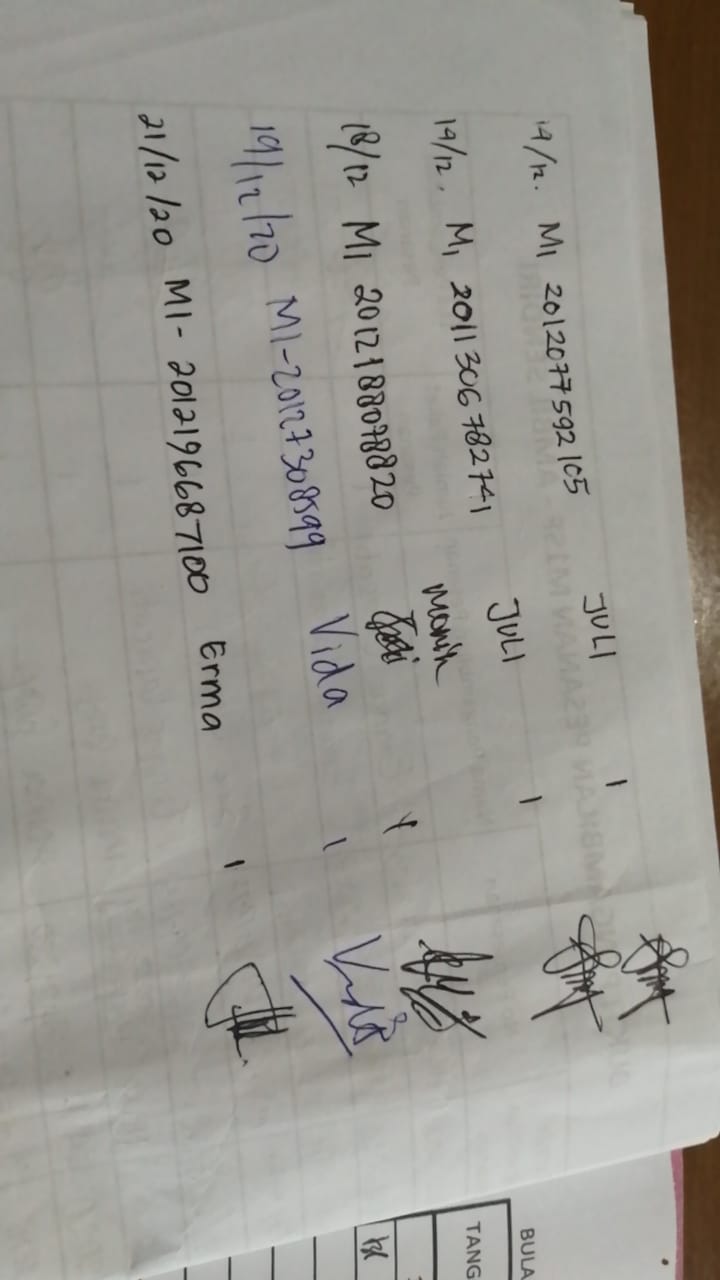 14/12. M1 2012077592105 JULI 1
14/12. M1 2011306782741 JULI 1
18/12 M1 2012188078820 Monik
19/12/20 M1-20127308599 Vida 1 Vida
21/12/20 M1-2012196687100 Erma 1
BULA
TANG